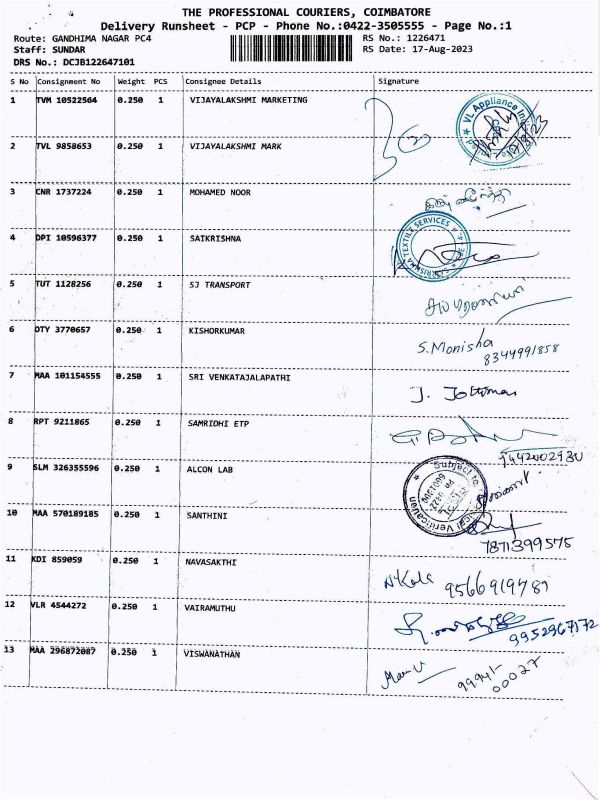 THE PROFESSIONAL COURIERS, COIMBATORE
Delivery Runsheet - PCP - Phone No.:0422-3505555 - Page No.:1
Route: GANDHIMA NAGAR PC4
RS No.: 1226471
Staff: SUNDAR
RS Date: 17-Aug-2023
DRS No.: DCJB122647101
S No Consignment No Weight PCS Consignee Details Signature
1 TVM 10522564 0.250 1 VIJAYALAKSHMI MARKETING
VL Appliance
2 TVL 9858653 0.250 1 VIJAYALAKSHMI MARK
2
3 CNR 1737224 0.250 1 MOHAMED NOOR
4 DPI 10596377 0.250 1 SAIKRISHNA
TEXTILE SERVICES
5 TUT 1128256 0.250 1 SJ TRANSPORT
6 OTY 3770657 0.250 1 KISHORKUMAR
S. Monisha
8344991858
7 MAA 101154555 0.250 1 SRI VENKATAJALAPATHI
J.
8 RPT 9211865 0.250 1 SAMRIDHI ETP
9 SLM 326355596 0.250 1 ALCON LAB
Subject to
Verification
10 MAA 570189185 0.250 1 SANTHINI
7871399575
11 KDI 859059 0.250 1 NAVASAKTHI
12 VLR 4544272 0.250 1 VAIRAMUTHU
13 MAA 296872087 0.250 1 VISWANATHAN